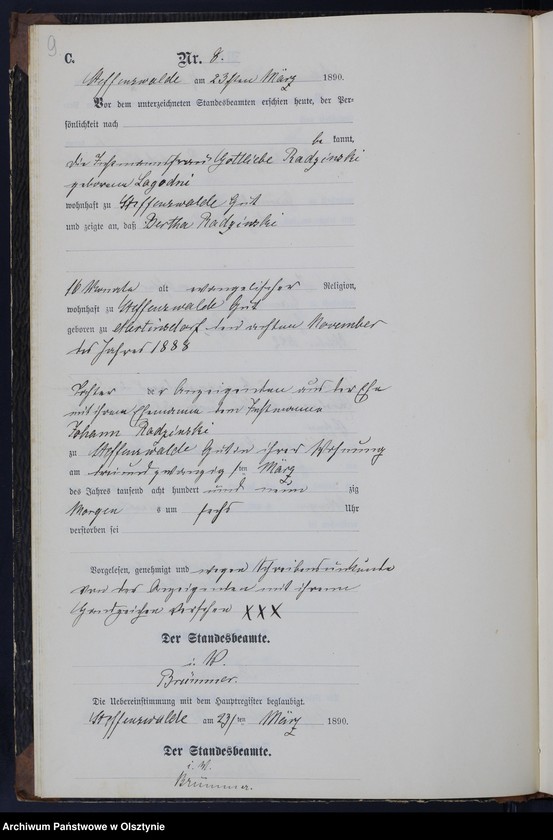 9
C.
Nr. 8.
Steffenswalde am 23sten März 1890.
Vor dem unterzeichneten Standesbeamten erschien heute, der Per-
sönlichkeit nach
be kannt,
die Instmannsfrau Gottliebe Radzinski
geborene Lagodni
wohnhaft zu Steffenswalde Gut
und zeigte an, daß Bertha Radzinski
16 Monate alt evangelischer Religion,
wohnhaft zu Steffenswalde Gut
geboren zu den achten November
des Jahres 1888
Tochter der Anzeigenden aus der Ehe
mit ihrem Ehemanne dem Instmanne
Johann Radzinski
zu Steffenswalde Gut in ihrer Wohnung
am dreiundzwanzigsten März
des Jahres tausend acht hundert und neun zig
Morgen s um sechs Uhr
verstorben sei
Vorgelesen, genehmigt und wegen Schreibensunkunde
von der Anzeigenden mit ihrem
Handzeichen versehen XXX
Der Standesbeamte.
i. V.
Brümmer.
Die Uebereinstimmung mit dem Hauptregister beglaubigt.
Steffenswalde am 23sten März 1890.
Der Standesbeamte.
i. V.
Brümmer.
Archiwum Państwowe w Olsztynie